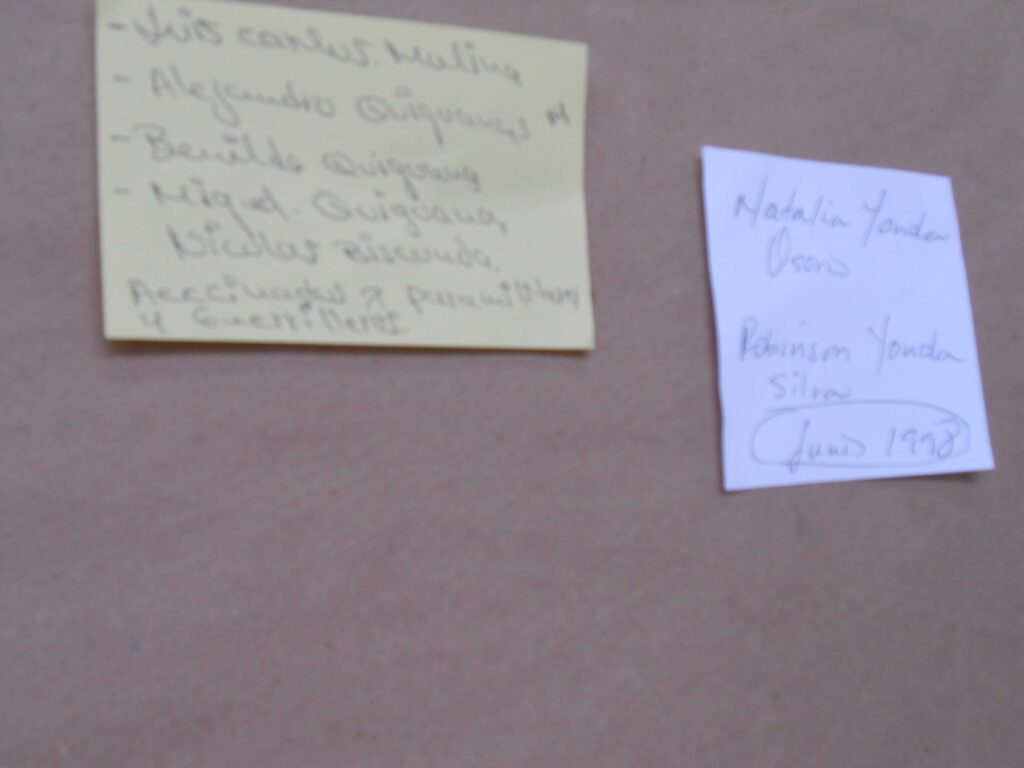 - Luis carlos. Molina
- Alejandro Quiguanas
- Benildo Quiguana
- Miguel. Quiguana,
Nicolas Biscunda
Acecinados x paramilitares
y Guerrilleros
Natalia Yonda
Osorio
Robinson Yonda
Silva
Junio 1998